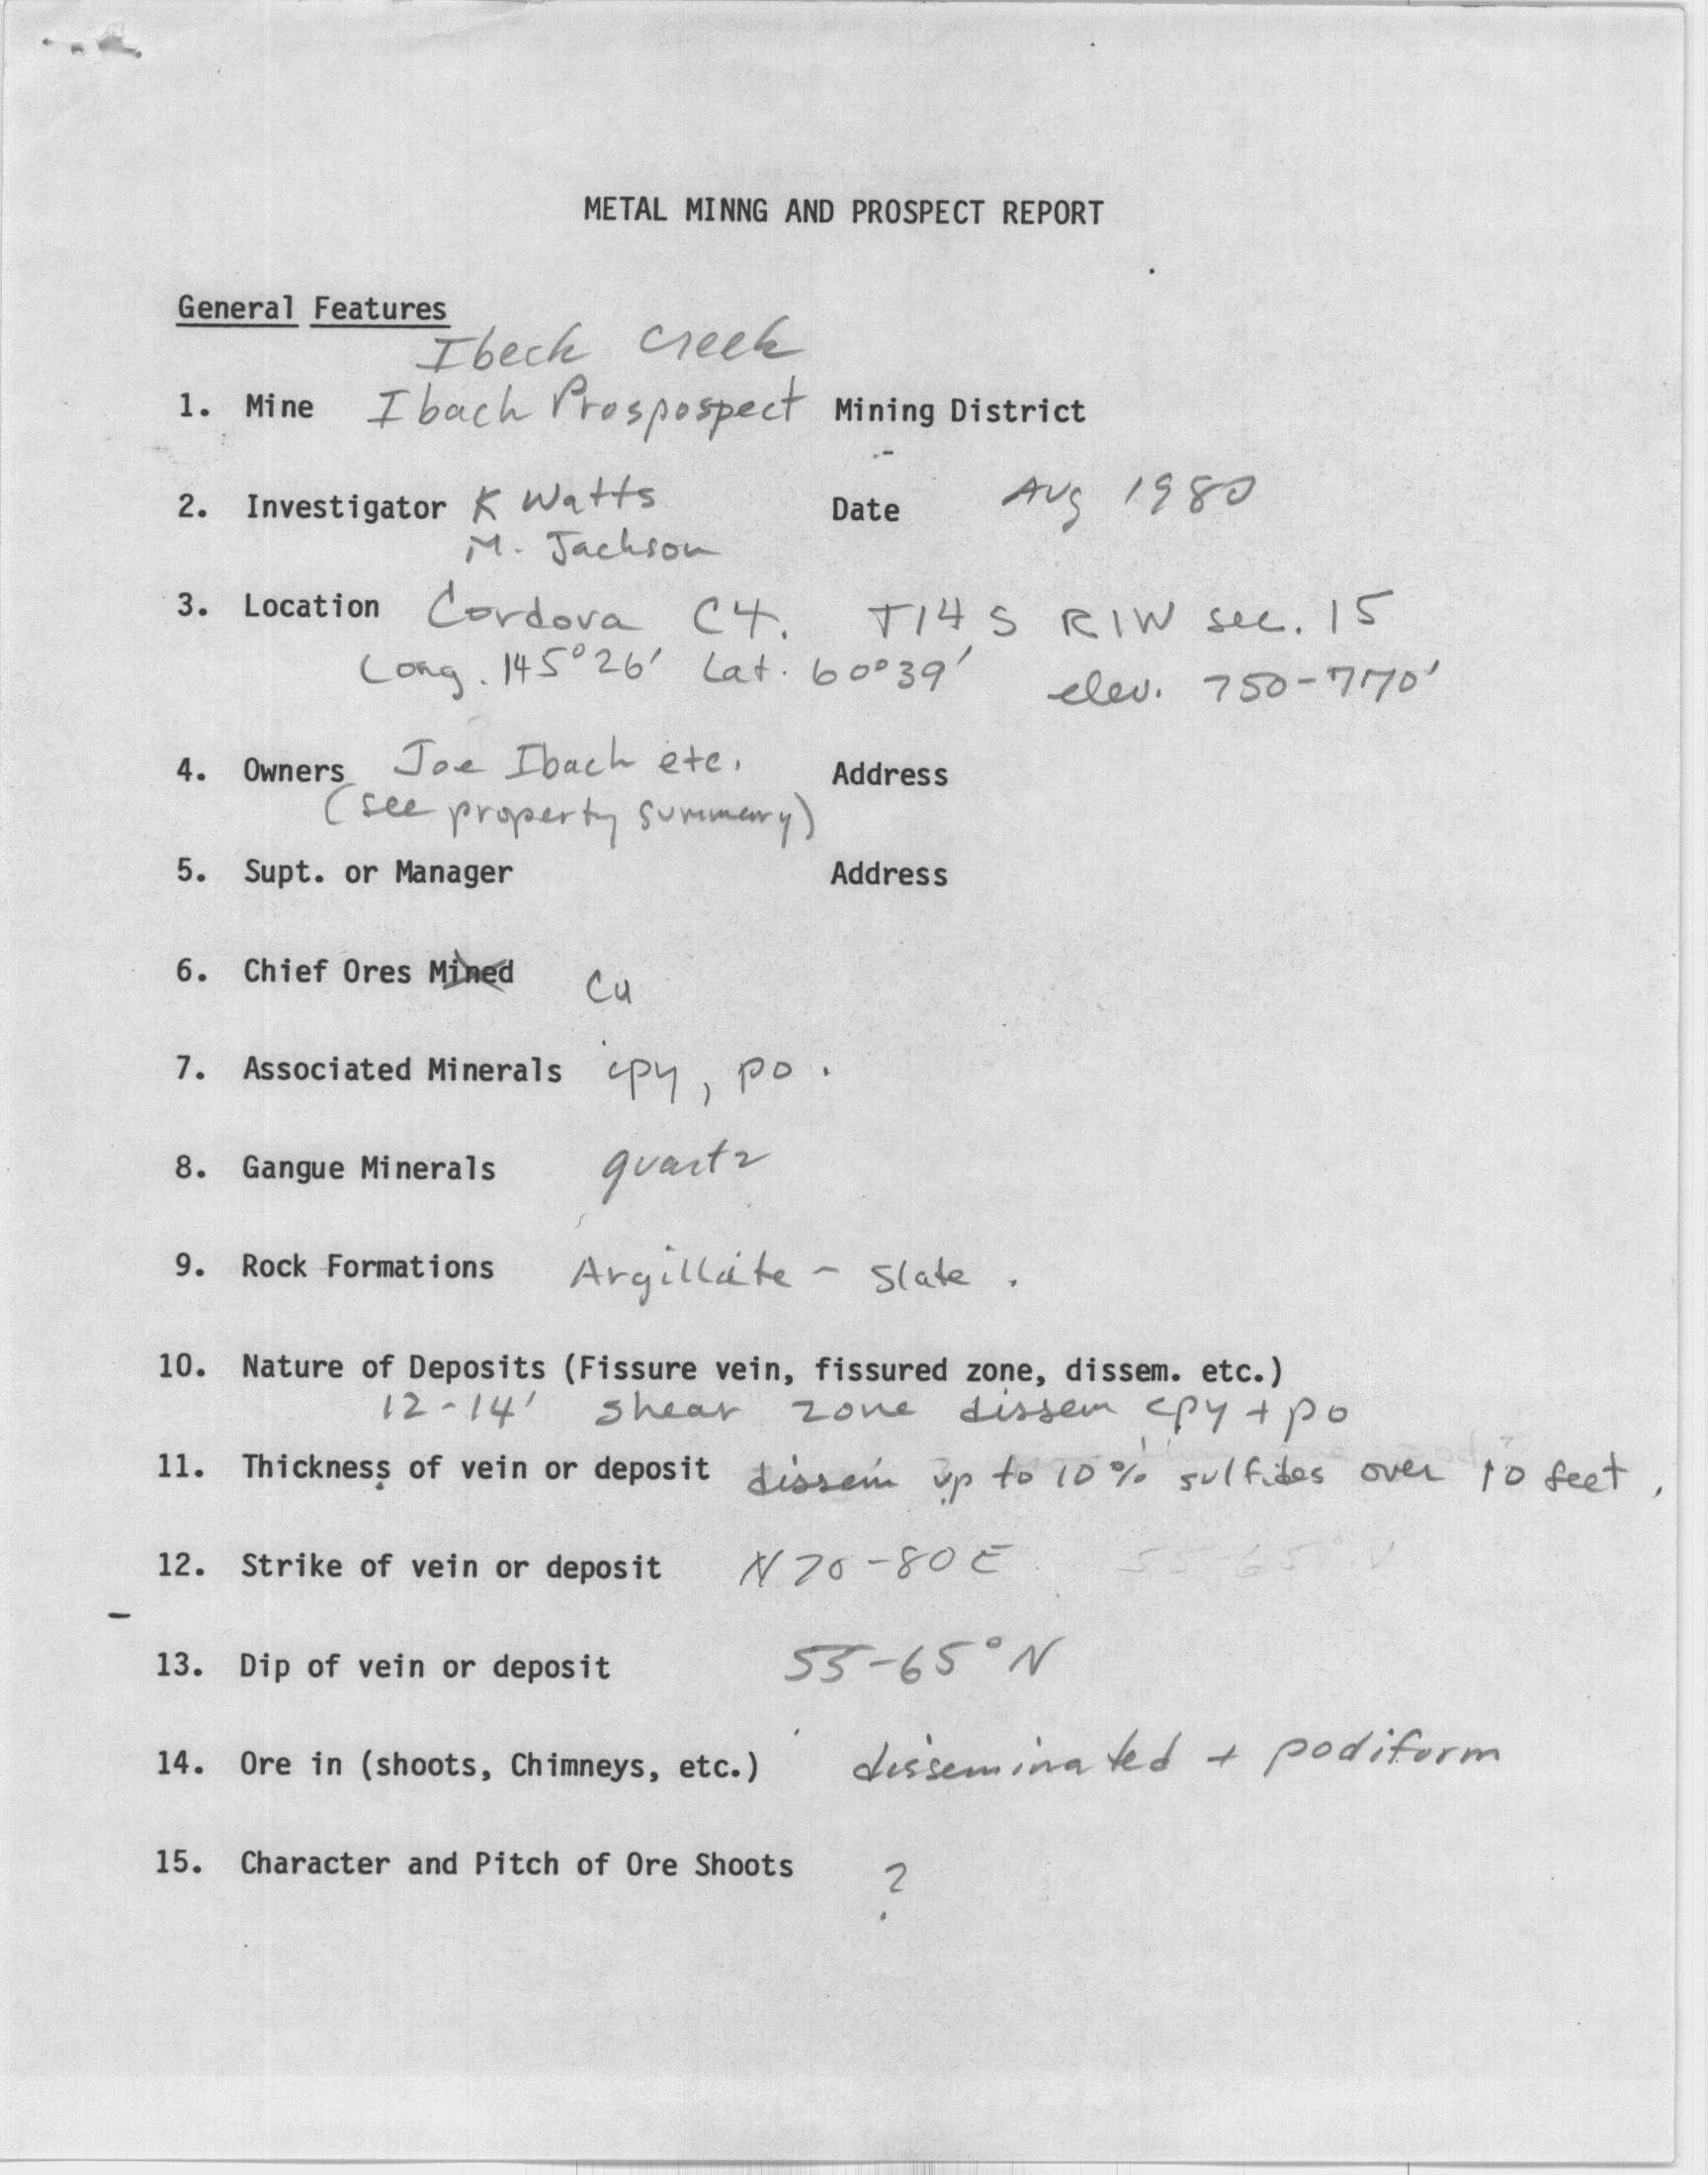 METAL MINNG AND PROSPECT REPORT
General Features
Ibeck Creek
1. Mine Ibach Prospospect Mining District
2. Investigator K Watts Date Aug 1980
M. Jackson
3. Location Cordova C4. T14S R1W sec. 15
Long. 145°26' Lat. 60°39' elev. 750-770'
4. Owners Joe Ibach etc. Address
(see property summary)
5. Supt. or Manager Address
6. Chief Ores Mined Cu
7. Associated Minerals cpy, po.
8. Gangue Minerals quartz
9. Rock Formations Argillite - slate.
10. Nature of Deposits (Fissure vein, fissured zone, dissem. etc.)
12-14' shear zone dissem cpy + po
11. Thickness of vein or deposit dissem up to 10% sulfides over 10 feet.
12. Strike of vein or deposit N70-80E 55-65° N
13. Dip of vein or deposit 55-65° N
14. Ore in (shoots, Chimneys, etc.) disseminated + podiform
15. Character and Pitch of Ore Shoots ?